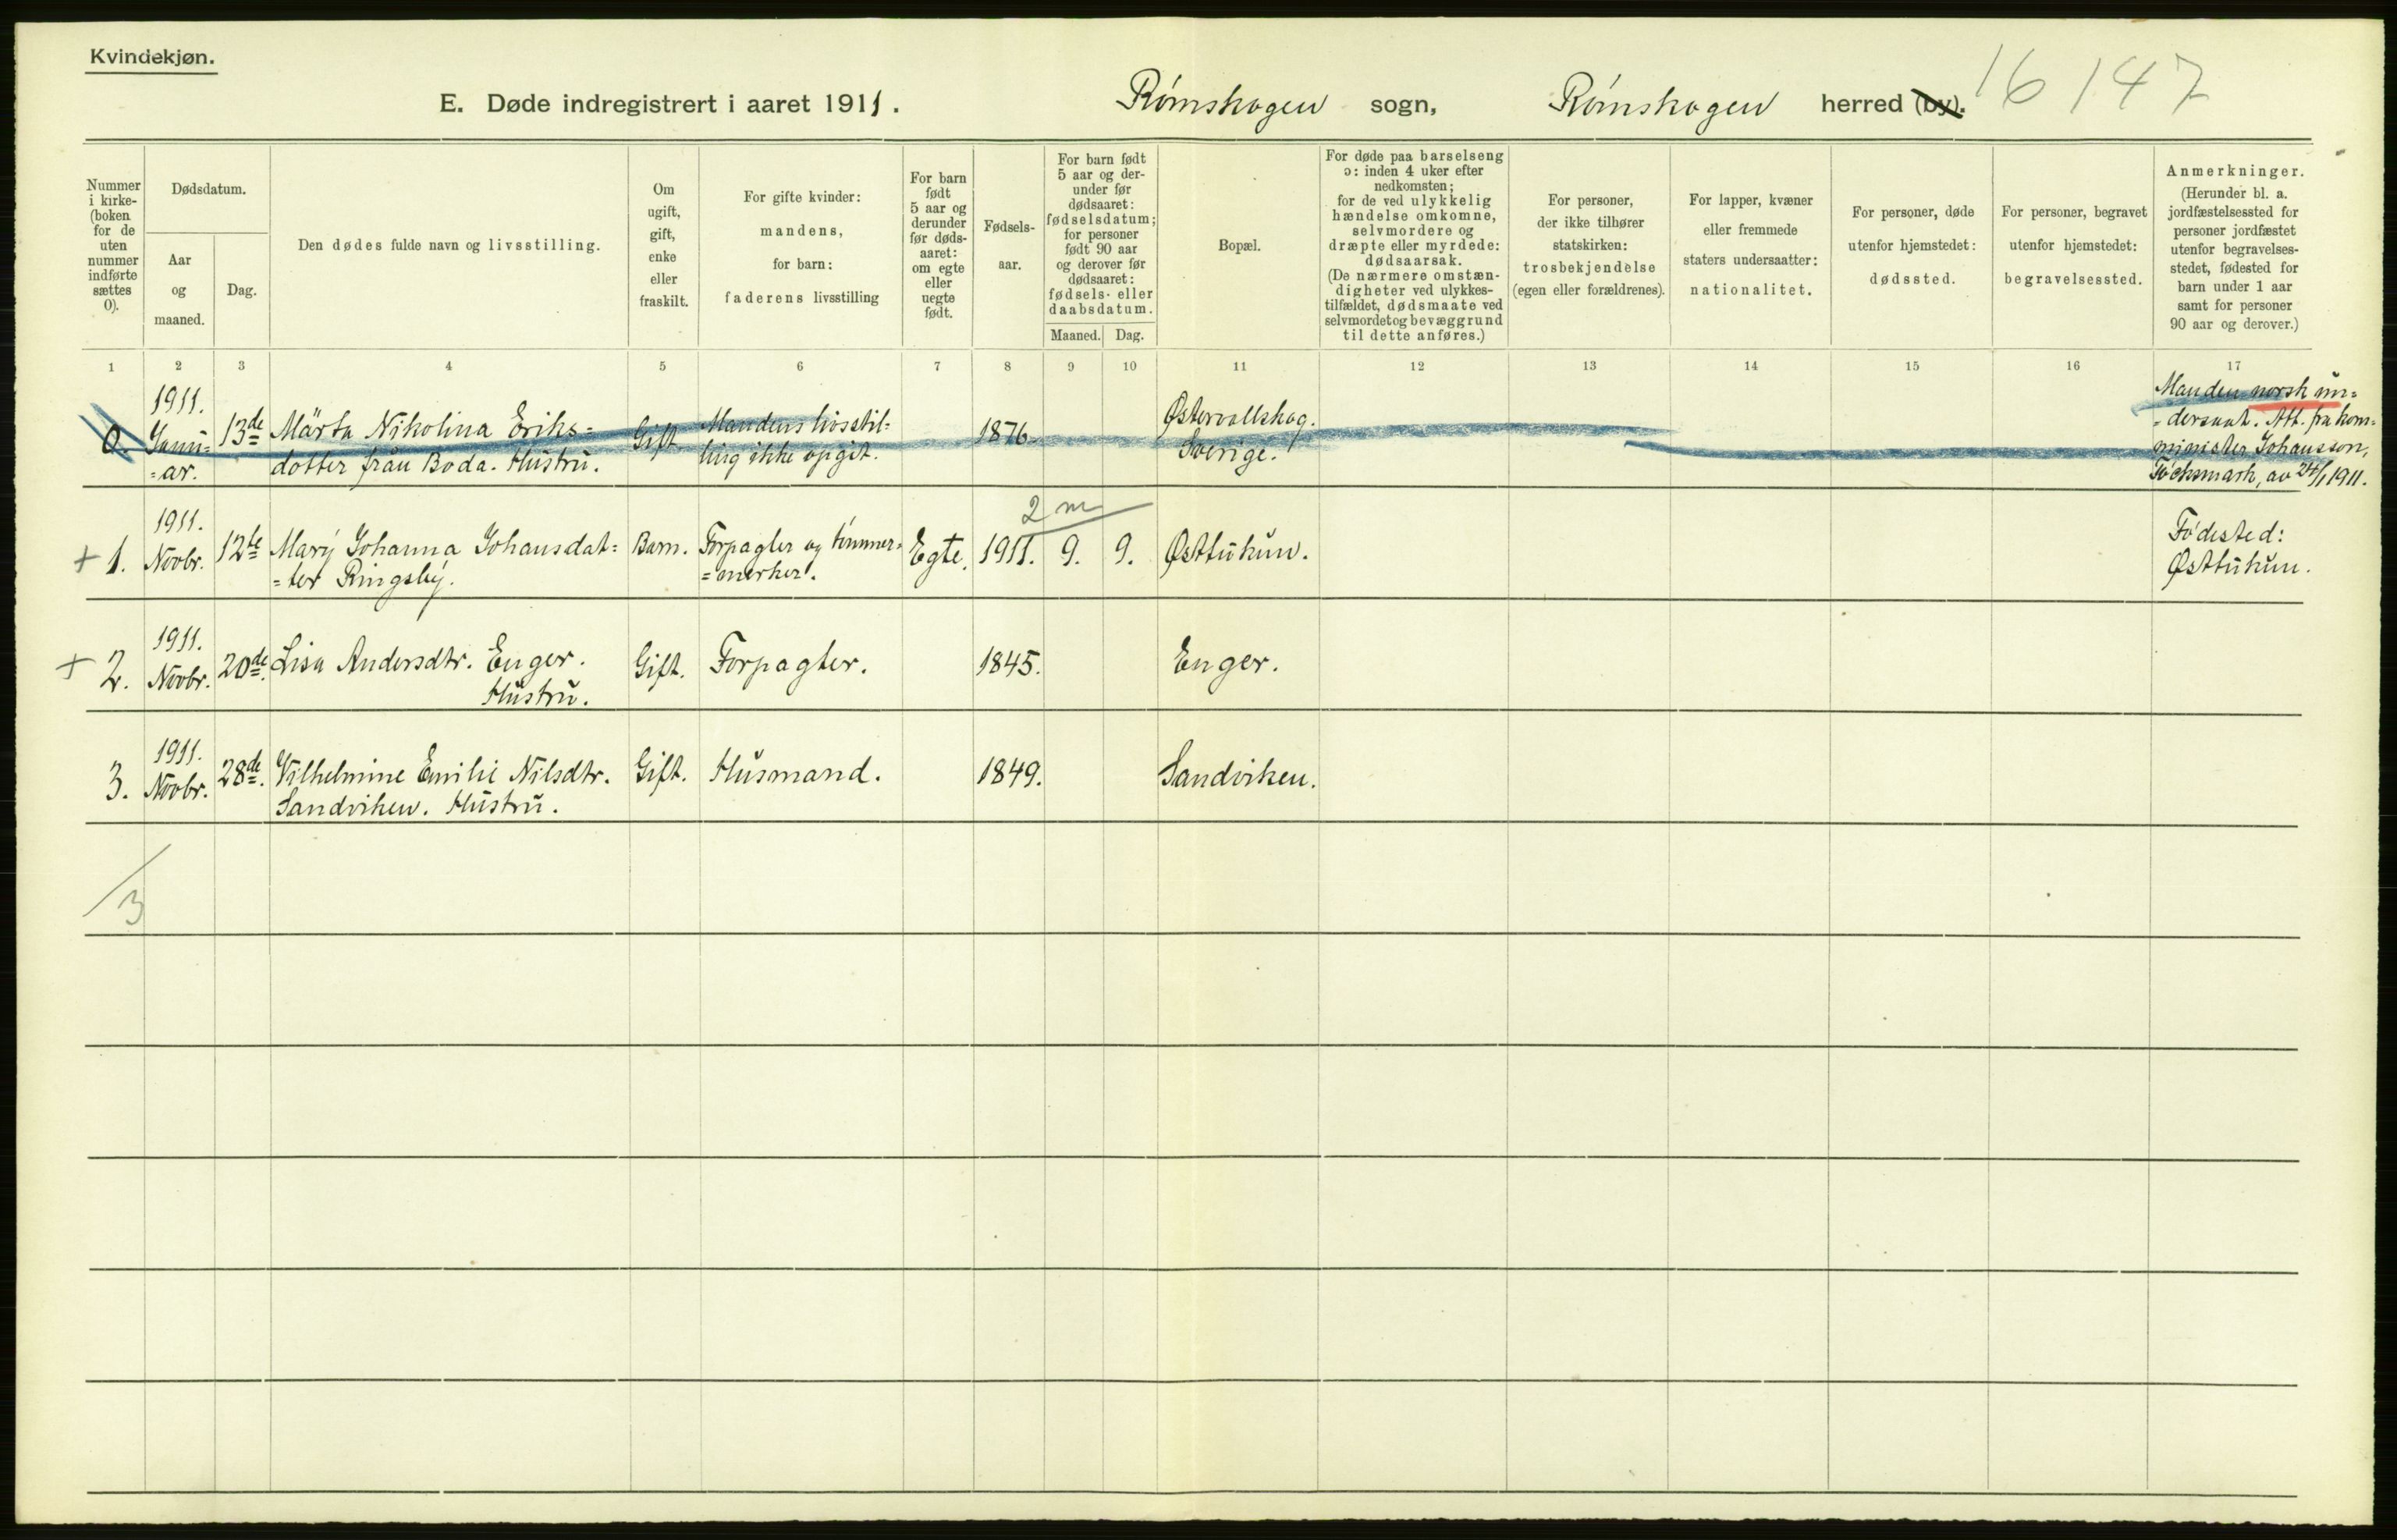 Kvindekjøn.
E. Døde indregistrert i aaret 1911. Rømskogen sogn, Rømskogen herred (by). 16 147
Nummer i kirke- (boken for de uten nummer indførte sættes 0).
Dødsdatum.
Aar og maaned.
Dag.
Den dødes fulde navn og livsstilling.
Om ugift, gift, enke eller fraskilt.
For gifte kvinder: mandens, for barn: faderens livsstilling
For barn født 5 aar og derunder før døds- aaret: om egte eller uegte født.
Fødsels- aar.
For barn født 5 aar og der- under før dødsaaret: fødselsdatum; for personer født 90 aar og derover før dødsaaret: fødsels- eller daabsdatum.
Maaned. Dag.
Bopæl.
For døde paa barselseng ɔ: inden 4 uker efter nedkomsten; for de ved ulykkelig hændelse omkomne, selvmordere og dræpte eller myrdede: dødsaarsak. (De nærmere omstæn- digheter ved ulykkes- tilfældet, dødsmaate ved selvmordet og bevæggrund til dette anføres.)
For personer, der ikke tilhører statskirken: trosbekjendelse (egen eller forældrenes).
For lapper, kvæner eller fremmede staters undersaatter: nationalitet.
For personer, døde utenfor hjemstedet: dødssted.
For personer, begravet utenfor hjemstedet: begravelsessted.
Anmerkninger. (Herunder bl. a. jordfæstelsessted for personer jordfæstet utenfor begravelses- stedet, fødested for barn under 1 aar samt for personer 90 aar og derover.)
1 2 3 4 5 6 7 8 9 10 11 12 13 14 15 16 17
0. 1911. Janu= =ar. 13de Märta Nikolina Eriks= dotter från Boda. Hustru. Gift. Mandens livsstil= ling ikke opgit. 1876. Östervallskog. Sverige. Manden norsk un= =dersaat. Att. fra kom= minister Johansson, Töcksmark, av 24/1 1911.
2 m
+ 1. 1911. Novbr. 12te Mary Johanna Johansdat= =ter Ringsby. Barn. Forpagter og tømmer= =merker. Egte. 1911. 9. 9. Østtukun. Fødested: Østtukun.
+ 2. 1911. Novbr. 20de. Lisa Andersdtr. Enger. Hustru. Gift. Forpagter. 1845. Enger.
3. 1911. Novbr. 28de. Vilhelmine Emilie Nilsdtr. Sandviken. Hustru. Gift. Husmand. 1849. Sandviken.
3